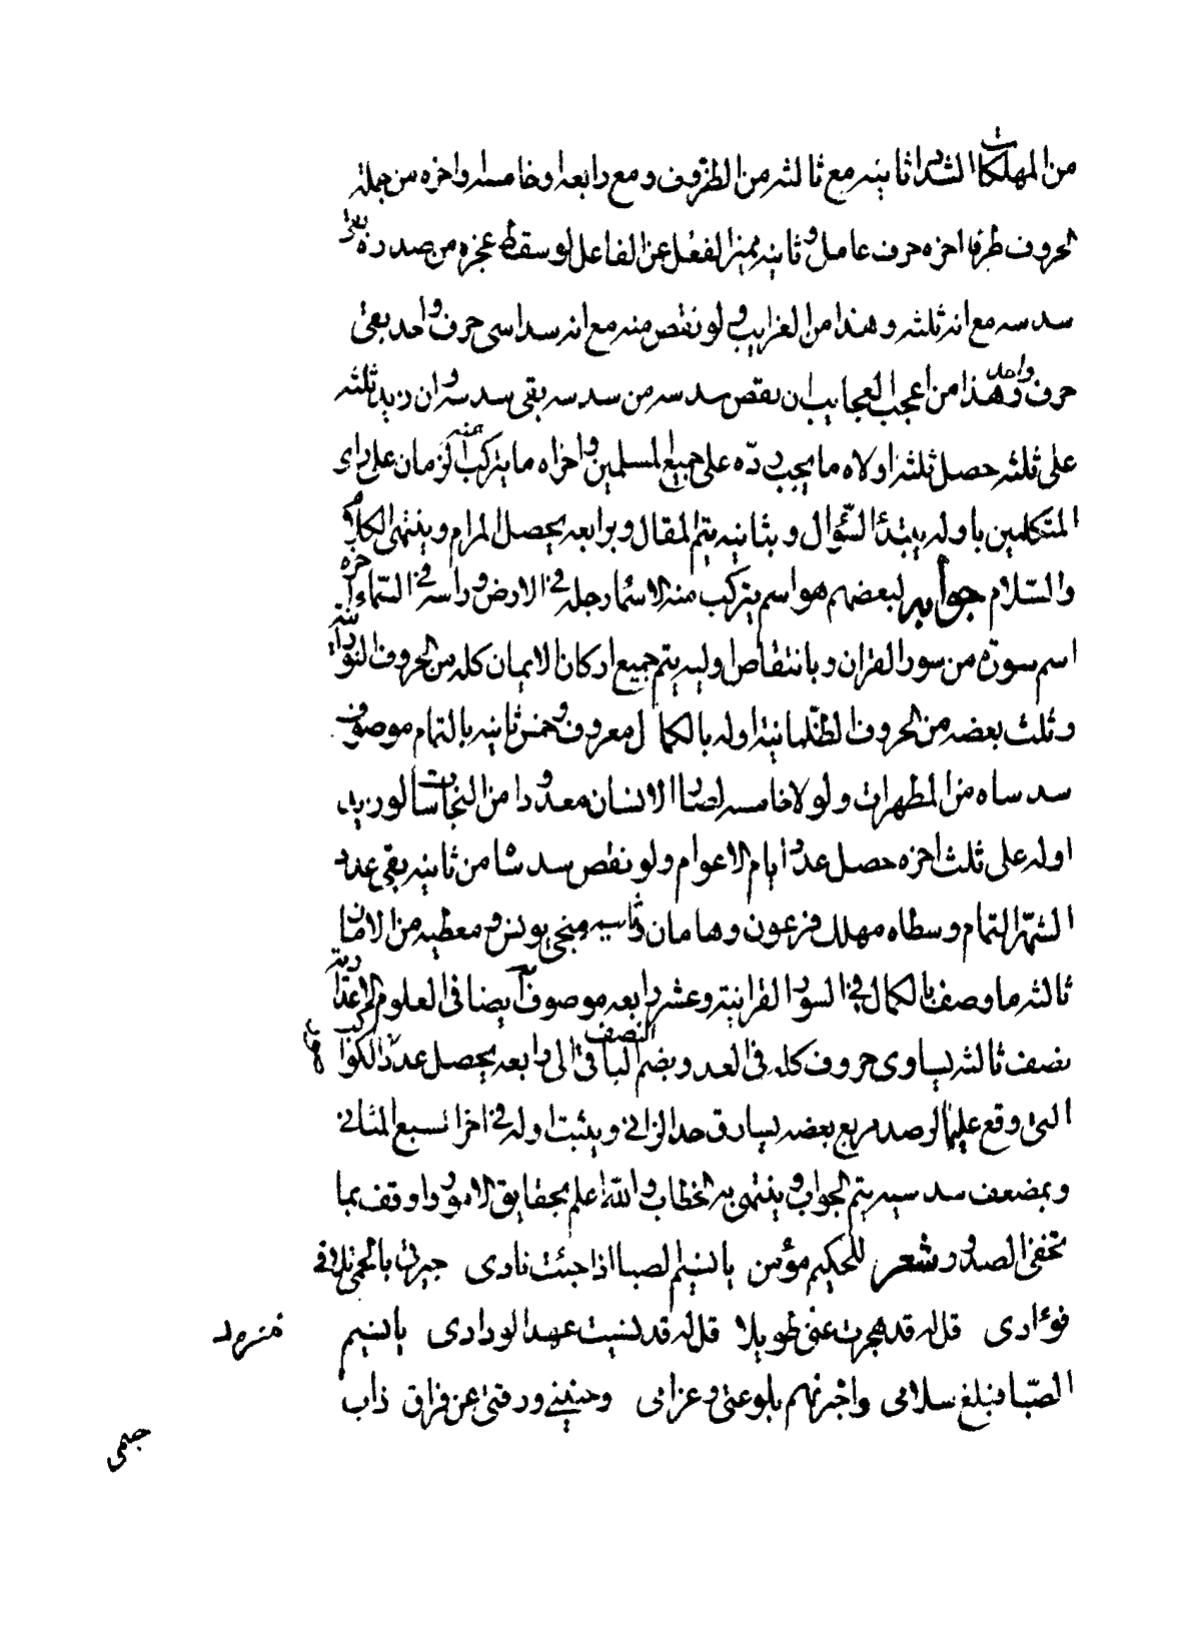 من المهلكات الشداد ثانيه مع ثالثه من الظروف ومع رابعه او خامسه واخره من جملة
الحروف طرفا اخره حرف عامل وثانيه مميز الفعل عن الفاعل لو سقط عجزه من صدره بقى
سدسه مع انه ثلثه وهذا من الغرايب ولو نقص منه مع انه سداسى حرف واحد بقى
حرف واحد وهذا من اعجب العجايب ان نقص سدسه من سدسه بقى سدسه وان زيد ثلثه
على ثلثه حصل ثلثه اولاه ما يجب رده على جميع المسلمين واخراه ما يتركب عنه الزمان على راى
المتكلمين باوله يبتدئ السؤال وبثانيه يتم المقال وبرابعه يحصل المرام وينتهى الكلام
والسلام جوابه لبعضهم هو اسم يتركب منه الاسماء رجله فى الارض وراسه فى السماء اخره
اسم سورة من سور القران وبانتقاص اوليه يتم جميع اركان الايمان كله من الحروف النورانية
وثلث بعضه من الحروف الظلمانية اوله بالكمال معروف وخمس ثانيه بالتمام موصوف
سدساه من المطهرات ولولا خامسه لصار الانسان معدودا من النجاسات لو زيد
اوله على ثلث اخره حصل عدد ايام الاعوام ولو نقص سدسا من ثانيه بقى عدد
الشهر التمام وسطاه مهلك فرعون وهامان خامسه منجى يونس ومعطيه من الامان
ثالثه ما وصف بالكمال فى السور القرانية وعشر رابعه موصوف ايضا فى العلوم الاعدادية
نصف ثالثه يساوى حروف كله فى العدد وبضم النصف الباقى الى رابعه يحصل عدد الكواكب
التى وقع عليها الرصد مربع بعضه يساوق حد الزانى ويثبت اوله فى اخر السبع المثانى
وبمضعف سدسيه يتم الجواب وينتهى به الخطاب والله اعلم بحقايق الامور واوقف بما
تخفى الصدور شعر للحكيم مؤمن يا نسيم الصبا اذا جئت نادى جيرتى بالحمى تلافى
فؤادى قل له قد هجرت عنى طويلا قل له قد نسيت عهد الودادى يا نسيم
الصبا فبلغ سلامى واخبرنهم بلوعتى وغرامى وحنينى ورقتى عن فراق ذاب
جسمى